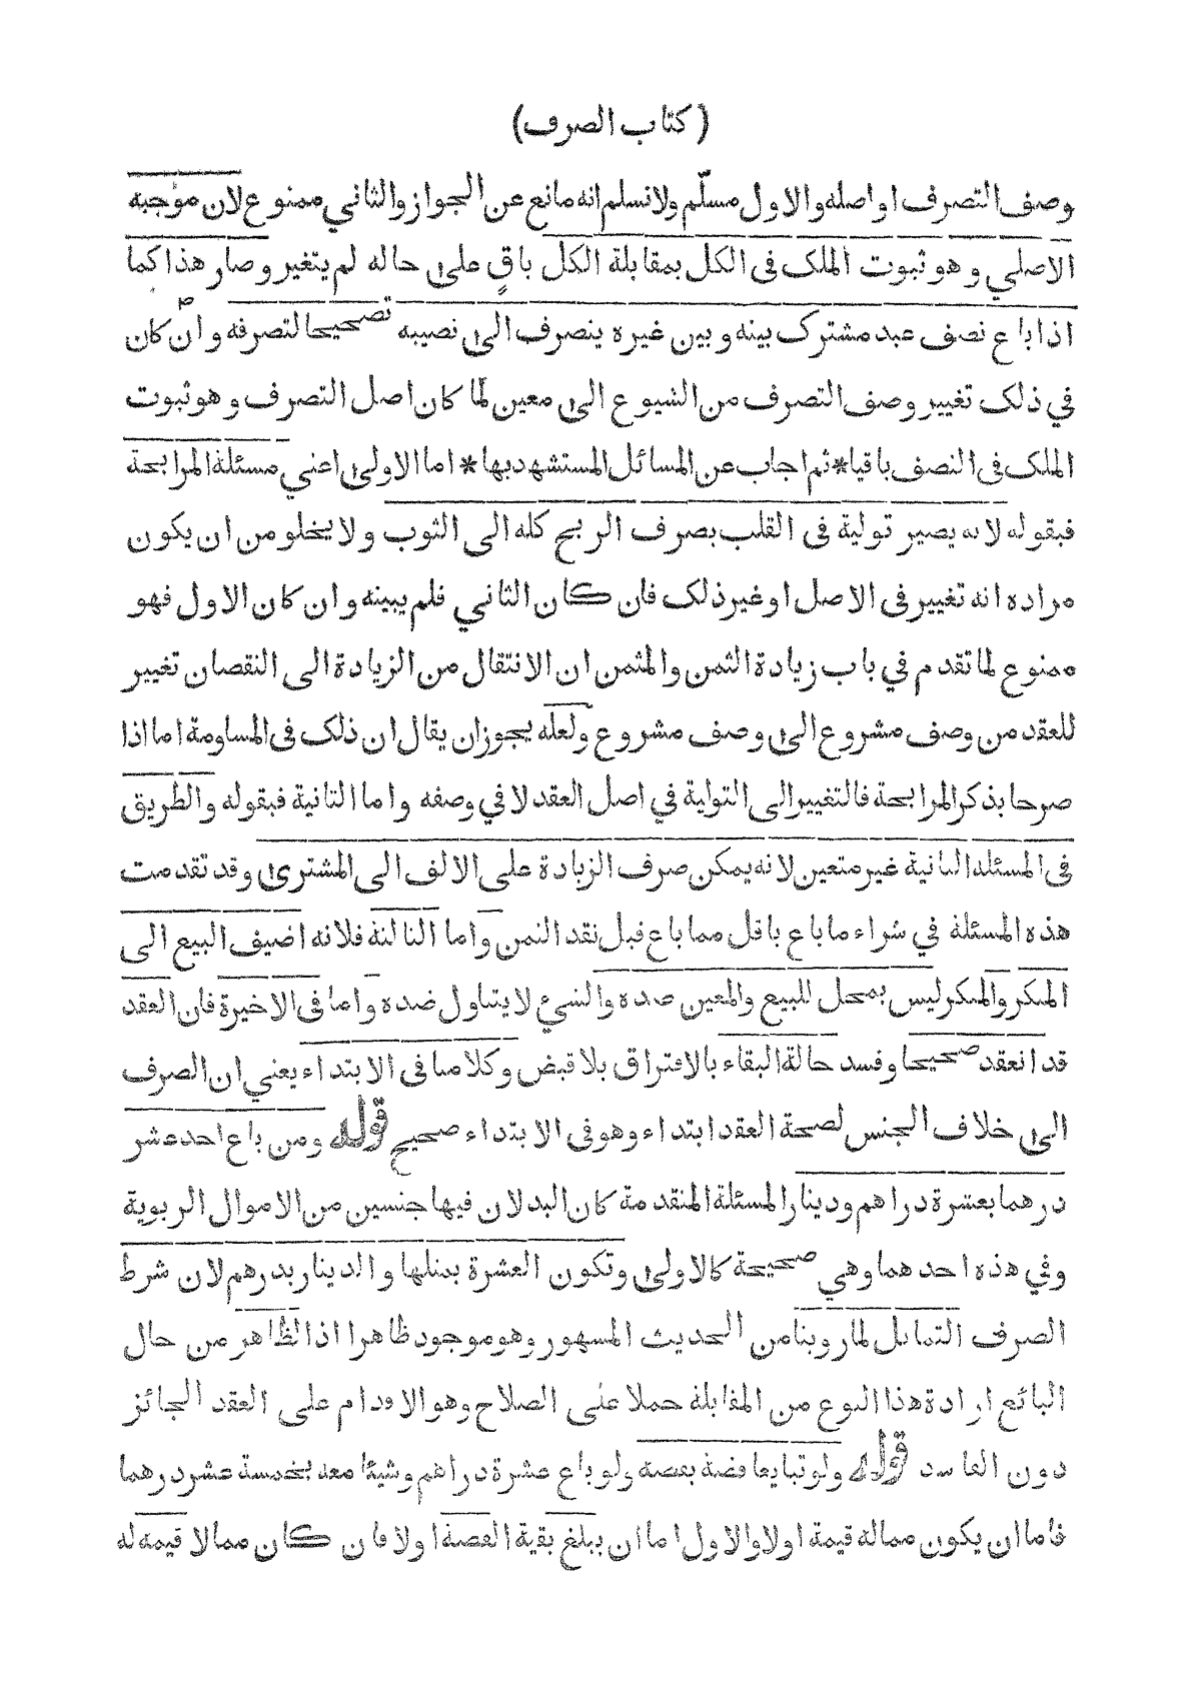 (كتاب الصرف)
وصف التصرف او اصله والاول مسلّم ولا نسلم انه مانع عن الجواز والثاني ممنوع لان موجبه
الاصلي وهو ثبوت الملك فى الكل بمقابلة الكل باقٍ على حاله لم يتغير وصار هذا كما
اذا باع نصف عبد مشترك بينه وبين غيره ينصرف الى نصيبه تصحيحا لتصرفه وان كان
في ذلك تغيير وصف التصرف من الشيوع الى معين لمّا كان اصل التصرف وهو ثبوت
الملك فى النصف باقيا * ثم اجاب عن المسائل المستشهد بها * اما الاولى اعني مسئلة المرابحة
فبقوله لانه يصير تولية فى القلب بصرف الربح كله الى الثوب ولا يخلو من ان يكون
مراده انه تغيير فى الاصل او غير ذلك فان كان الثاني فلم يبينه وان كان الاول فهو
ممنوع لما تقدم في باب زيادة الثمن والمثمن ان الانتقال من الزيادة الى النقصان تغيير
للعقد من وصف مشروع الى وصف مشروع ولعله يجوز ان يقال ان ذلك فى المساومة اما اذا
صرحا بذكر المرابحة فالتغيير الى التولية في اصل العقد لا في وصفه واما الثانية فبقوله والطريق
فى المسئلة الثانية غير متعين لانه يمكن صرف الزيادة على الالف الى المشترى وقد تقدمت
هذه المسئلة في شراء ما باع باقل مما باع قبل نقد الثمن واما الثالثة فلانه اضيف البيع الى
المنكر والمنكر ليس بمحل للبيع والمعين ضده والشيء لا يتناول ضده واما فى الاخيرة فان العقد
قد انعقد صحيحا وفسد حالة البقاء بالافتراق بلا قبض وكلامنا فى الابتداء يعني ان الصرف
الى خلاف الجنس لصحة العقد ابتداء وهو فى الابتداء صحيح قوله ومن باع احد عشر
درهما بعشرة دراهم ودينار المسئلة المتقدمة كان البدلان فيها جنسين من الاموال الربوية
وفي هذه احدهما وهي صحيحة كالاولى وتكون العشرة بمثلها والدينار بدرهم لان شرط
الصرف التماثل لما روينا من الحديث المشهور وهو موجود ظاهرا اذ الظاهر من حال
البائع ارادة هذا النوع من المقابلة حملا على الصلاح وهو الاقدام على العقد الجائز
دون الفاسد قوله ولو تبايعا فضة بفضة ولو باع عشرة دراهم وشيئا معه بخمسة عشر درهما
فاما ان يكون مما له قيمة اولا والاول اما ان يبلغ بقية الفضة اولا فان كان مما لا قيمة له